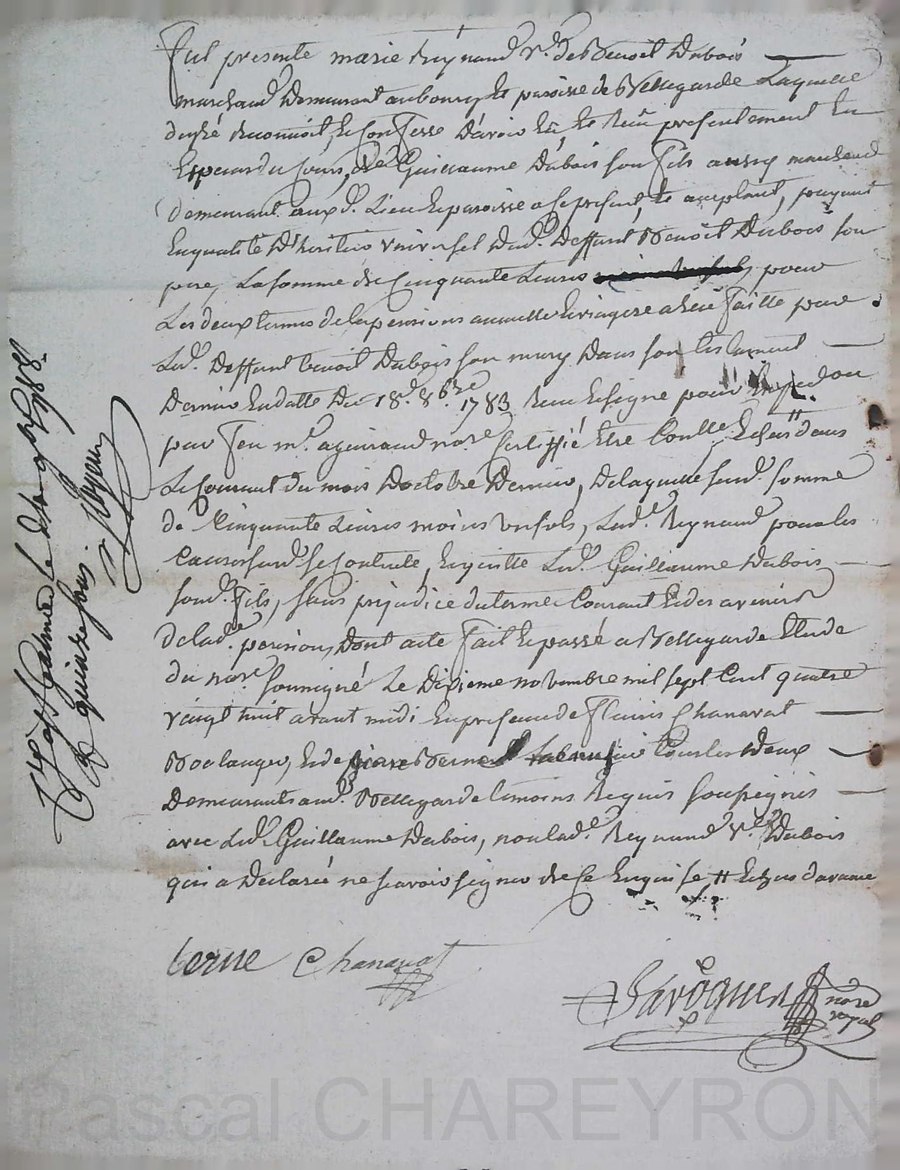 Fut presente marie Reynaud v.e de Benoit Dubois
marchand Demeurant au bourg et paroisse de Bellegarde Laquelle
de gré Reconnoit, et confesse D'avoir Eû et Reçû presentement En
Especes du cours, de Guillaume Dubois son fils aussy marchand
demeurant aux d. Lieu et paroisse a ce present, et acceptant, payant
En qualité D'heritier universel dud. Deffunt Benoit Dubois son
pere, La somme de Cinquante Livres pour
Les deux termes de la pension annuelle et viagere a Elle faitte par
Led. Deffunt benoit Dubois son mary Dans son testament
Dernier En datte Du 18.e 8bre 1783 Reçu et signé pour
par feu m.e aguiraud no.re certiffié Etre Controllé dans
Le courant du mois Doctobre Dernier, De laquelle sus d. somme
de Cinquante Livres moins un sols, Lad.e Reynaud pour les
causes sus d. se contente, En quitte Led. Guillaume Dubois
sond. fils, sans préjudice du terme Courant et des avenir
de lad.e pension, Dont acte fait et passé a Bellegarde Etude
du no.re soussigné Le Dixieme novembre mil sept Cent quatre
vingt huit avant midi En presence de Fleuris Chanavat
Boulanger, et de pierre Berne tous les deux
Demeurants aud. Bellegarde temoins Requis soussignés
avec Led. Guillaume Dubois, non lad.e Reynaud v.e Dubois
qui a Declaré ne scavoir signer de ce Enquise
berne Chanavat
no.re
royal
le dix 9bre 1788.
quinze sous.
Pascal CHAREYRON